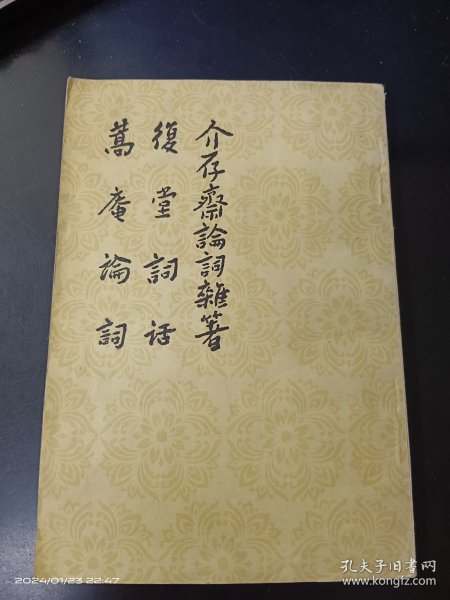 介存齋論詞雜著
復堂詞话
蒿庵論詞
2024/01/23 22:47
孔夫子旧书网
www.kongfz.com